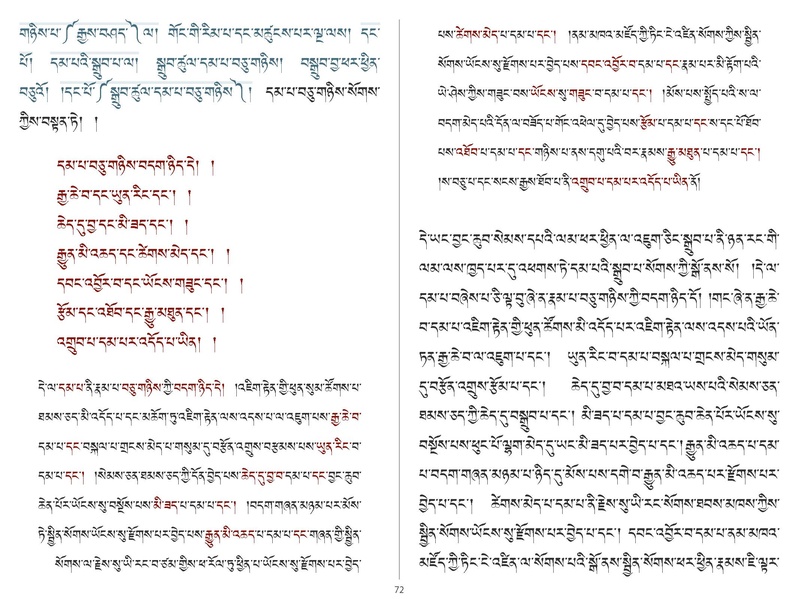 གཉིས་པ་༼རྒྱས་བཤད་༽ལ། གོང་གི་རིམ་པ་དང་མཚུངས་པར་ལྔ་ལས། དང་
པོ། དམ་པའི་སྒྲུབ་པ་ལ། སྒྲུབ་ཚུལ་དམ་པ་བཅུ་གཉིས། བསྒྲུབ་བྱ་ཕར་ཕྱིན་
བཅུའོ། །དང་པོ་༼སྒྲུབ་ཚུལ་དམ་པ་བཅུ་གཉིས་༽། དམ་པ་བཅུ་གཉིས་སོགས་
ཀྱིས་བསྟན་ཏེ། །
དམ་པ་བཅུ་གཉིས་བདག་ཉིད་དེ། །
རྒྱ་ཆེ་བ་དང་ཡུན་རིང་དང་། །
ཆེད་དུ་བྱ་དང་མི་ཟད་དང་། །
རྒྱུན་མི་འཆད་དང་ཚེགས་མེད་དང་། །
དབང་འབྱོར་བ་དང་ཡོངས་གཟུང་དང་། །
རྩོམ་དང་འཐོབ་དང་རྒྱུ་མཐུན་དང་། །
འགྲུབ་པ་དམ་པར་འདོད་པ་ཡིན། །
དེ་ལ་དམ་པ་ནི་རྣམ་པ་བཅུ་གཉིས་ཀྱི་བདག་ཉིད་དེ། །འཇིག་རྟེན་གྱི་ཕུན་སུམ་ཚོགས་པ་
ཐམས་ཅད་མི་འདོད་པ་དང་མཆོག་ཏུ་འཇིག་རྟེན་ལས་འདས་པ་ལ་འཇུག་པས་རྒྱ་ཆེ་བ་
དམ་པ་དང་བསྐལ་པ་གྲངས་མེད་པ་གསུམ་དུ་བརྩོན་འགྲུས་བརྩམས་པས་ཡུན་རིང་བ་
དམ་པ་དང་། །སེམས་ཅན་ཐམས་ཅད་ཀྱི་དོན་བྱེད་པས་ཆེད་དུ་བྱ་བ་དམ་པ་དང་བྱང་ཆུབ་
ཆེན་པོར་ཡོངས་སུ་བསྔོས་པས་མི་ཟད་པ་དམ་པ་དང་། །བདག་གཞན་མཉམ་པར་མོས་
ཏེ་སྦྱིན་སོགས་ཡོངས་སུ་རྫོགས་པར་བྱེད་པས་རྒྱུན་མི་འཆད་པ་དམ་པ་དང་གཞན་གྱི་སྦྱིན་
སོགས་ལ་རྗེས་སུ་ཡི་རང་བ་ཙམ་གྱིས་ཕ་རོལ་ཏུ་ཕྱིན་པ་ཡོངས་སུ་རྫོགས་པར་བྱེད་
པས་ཚེགས་མེད་པ་དམ་པ་དང་། །ནམ་མཁའ་མཛོད་ཀྱི་ཏིང་ངེ་འཛིན་སོགས་ཀྱིས་སྦྱིན་
སོགས་ཡོངས་སུ་རྫོགས་པར་བྱེད་པས་དབང་འབྱོར་བ་དམ་པ་དང་རྣམ་པར་མི་རྟོག་པའི་
ཡེ་ཤེས་ཀྱིས་གཟུང་བས་ཡོངས་སུ་གཟུང་བ་དམ་པ་དང་། །མོས་པས་སྤྱོད་པའི་ས་ལ་
བདག་མེད་པའི་དོན་ལ་བཟོད་པ་གོང་འཕེལ་དུ་བྱེད་པས་རྩོམ་པ་དམ་པ་དང་ས་དང་པོ་ཐོབ་
པས་འཐོབ་པ་དམ་པ་དང་གཉིས་པ་ནས་དགུ་པའི་བར་རྣམས་རྒྱུ་མཐུན་པ་དམ་པ་དང་། །
།ས་བཅུ་པ་དང་སངས་རྒྱས་ཐོབ་པ་ནི་འགྲུབ་པ་དམ་པར་འདོད་པ་ཡིན་ནོ།
དེ་ཡང་བྱང་ཆུབ་སེམས་དཔའི་ལམ་ཕར་ཕྱིན་ལ་འཇུག་ཅིང་སྒྲུབ་པ་ནི་ཉན་རང་གི་
ལམ་ལས་ཁྱད་པར་དུ་འཕགས་ཏེ་དམ་པའི་སྒྲུབ་པ་སོགས་ཀྱི་སྒོ་ནས་སོ། །དེ་ལ་
དམ་པ་བཞེས་པ་ཅི་ལྟ་བུ་ཞེ་ན་རྣམ་པ་བཅུ་གཉིས་ཀྱི་བདག་ཉིད་དོ། །གང་ཞེ་ན་རྒྱ་ཆེ་
བ་དམ་པ་འཇིག་རྟེན་གྱི་ཕུན་ཚོགས་མི་འདོད་པར་འཇིག་རྟེན་ལས་འདས་པའི་ཡོན་
ཏན་རྒྱ་ཆེ་བ་ལ་འཇུག་པ་དང་། ཡུན་རིང་བ་དམ་པ་བསྐལ་པ་གྲངས་མེད་གསུམ་
དུ་བརྩོན་འགྲུས་རྩོམ་པ་དང་། ཆེད་དུ་བྱ་བ་དམ་པ་མཐའ་ཡས་པའི་སེམས་ཅན་
ཐམས་ཅད་ཀྱི་ཆེད་དུ་བསྒྲུབ་པ་དང་། མི་ཟད་པ་དམ་པ་བྱང་ཆུབ་ཆེན་པོར་ཡོངས་སུ་
བསྔོས་པས་ཕུང་པོ་ལྷག་མེད་དུ་ཡང་མི་ཟད་པར་བྱེད་པ་དང་། རྒྱུན་མི་འཆད་པ་དམ་
པ་བདག་གཞན་མཉམ་པ་ཉིད་དུ་མོས་པས་དགེ་བ་རྒྱུན་མི་འཆད་པར་རྫོགས་པར་
བྱེད་པ་དང་། ཚེགས་མེད་པ་དམ་པ་ནི་རྗེས་སུ་ཡི་རང་སོགས་ཐབས་མཁས་ཀྱིས་
སྦྱིན་སོགས་ཡོངས་སུ་རྫོགས་པར་བྱེད་པ་དང་། དབང་འབྱོར་བ་དམ་པ་ནམ་མཁའ་
མཛོད་ཀྱི་ཏིང་ངེ་འཛིན་ལ་སོགས་པའི་སྒོ་ནས་སྦྱིན་སོགས་ཕར་ཕྱིན་རྣམས་ཇི་ལྟར་
72